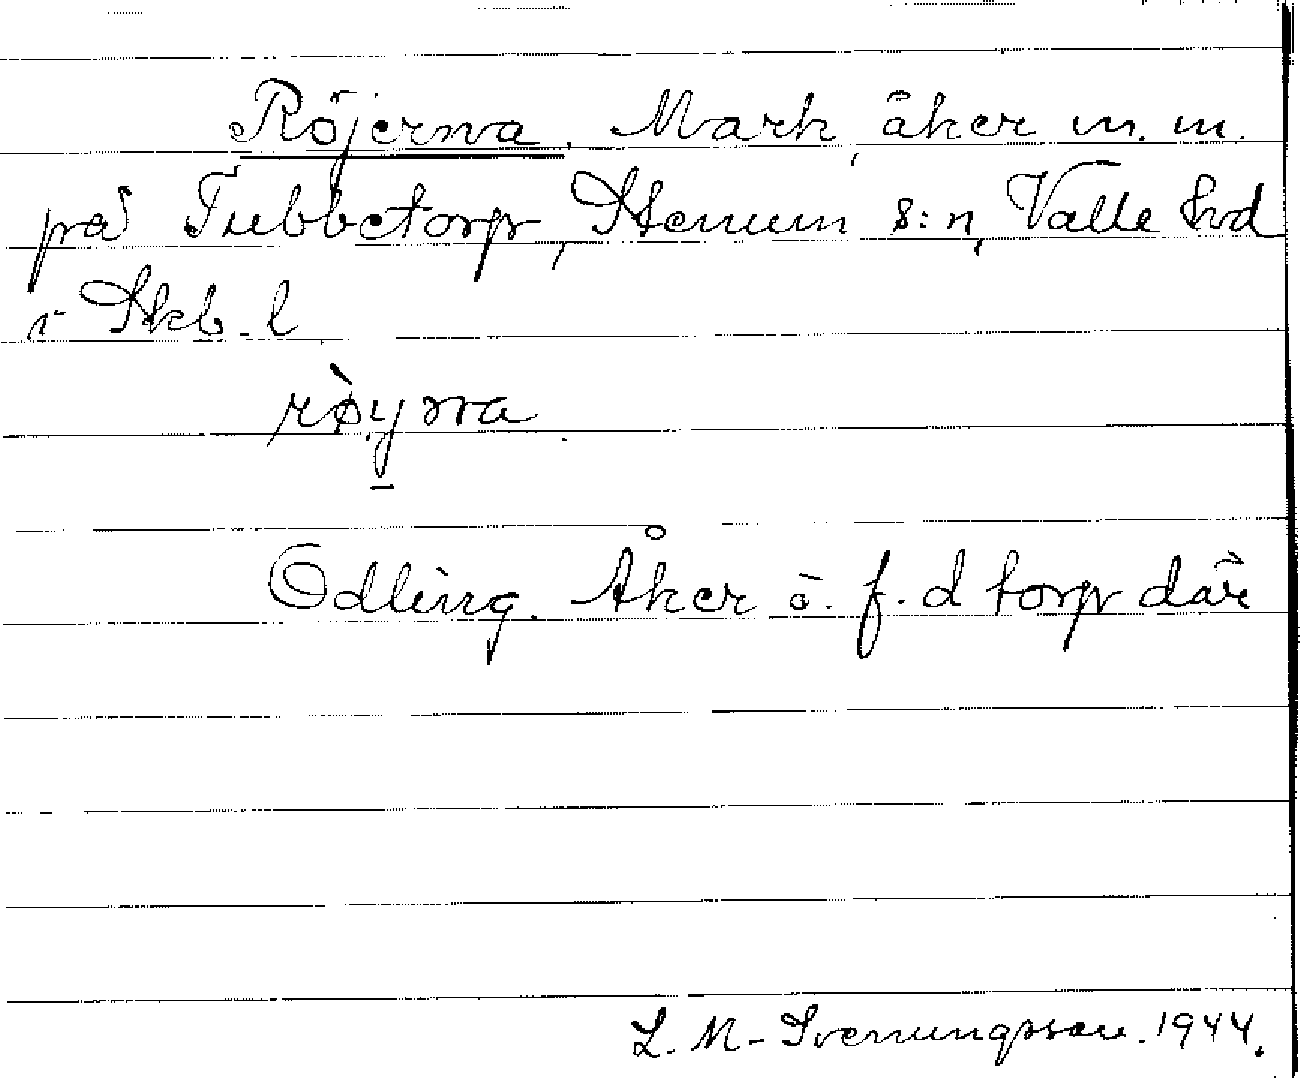 Röjerna. Mark, åker m. m.
på Tubbetorp, Stenum s:n, Valle hd
i Skb. l
rø̀yṟna
Odling. Åker o. f. d torp där
L. M. Svenungsson. 1944.